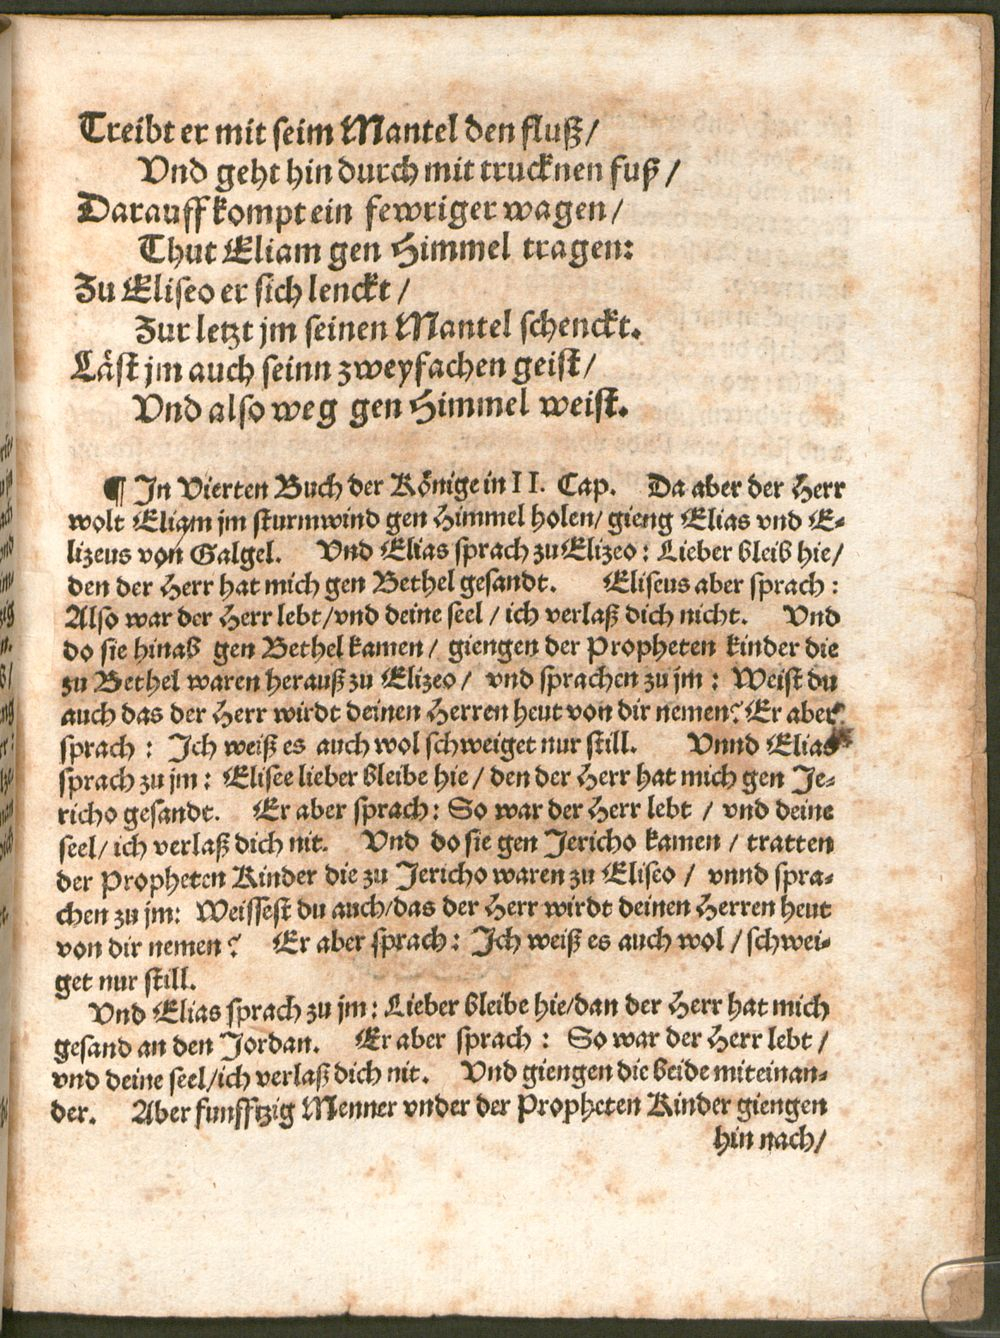 Treibt er mit seim Mantel den fluß/
Vnd geht hin durch mit trucknen fuß/
Darauff kompt ein fewriger wagen/
Thut Eliam gen Himmel tragen:
Zu Eliseo er sich lenckt/
Zur letzt jm seinen Mantel schenckt.
Läst jm auch seinn zweyfachen geist/
Vnd also weg gen Himmel weist.
¶ In Vierten Buch der Könige in II. Cap. Da aber der Herr
wolt Eliam jm sturmwind gen Himmel holen/ gieng Elias vnd E-
lizeus von Galgel. Vnd Elias sprach zu Elizeo: Lieber bleib hie/
den der Herr hat mich gen Bethel gesandt. Eliseus aber sprach:
Also war der Herr lebt/vnd deine seel/ ich verlaß dich nicht. Vnd
do sie hinab gen Bethel kamen/ giengen der Propheten kinder die
zu Bethel waren herauß zu Elizeo/ vnd sprachen zu jm: Weist du
auch das der Herr wirdt deinen Herren heut von dir nemen? Er aber
sprach: Ich weiß es auch wol schweiget nur still. Vnnd Elias
sprach zu jm: Elisee lieber bleibe hie/ den der Herr hat mich gen Je-
richo gesandt. Er aber sprach: So war der Herr lebt / vnd deine
seel/ ich verlaß dich nit. Vnd do sie gen Jericho kamen / tratten
der Propheten Kinder die zu Jericho waren zu Eliseo / vnnd spra-
chen zu jm: Weissest du auch/das der Herr wirdt deinen Herren heut
von dir nemen? Er aber sprach: Ich weiß es auch wol / schwei-
get nur still.
Vnd Elias sprach zu jm: Lieber bleibe hie/dan der Herr hat mich
gesand an den Jordan. Er aber sprach: So war der Herr lebt/
vnd deine seel/ich verlaß dich nit. Vnd giengen die beide miteinan-
der. Aber funfftzig Menner vnder der Propheten Kinder giengen
hin nach/